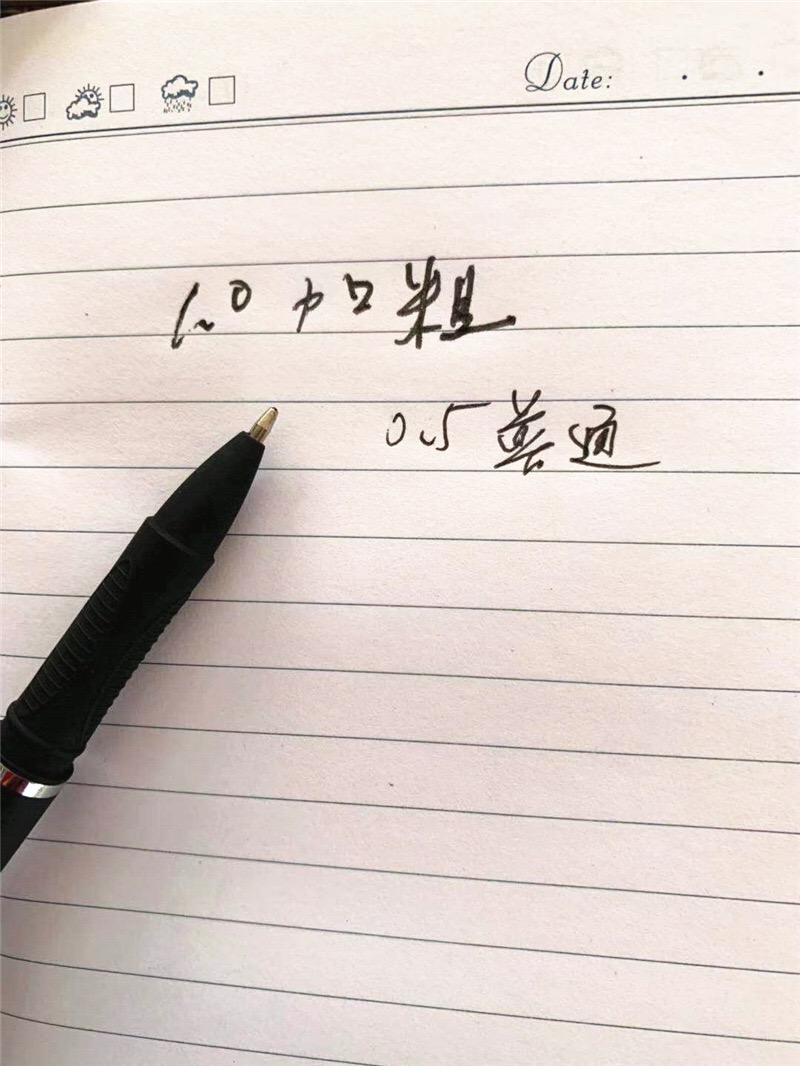 Date:
1.0 加粗
0.5 普通